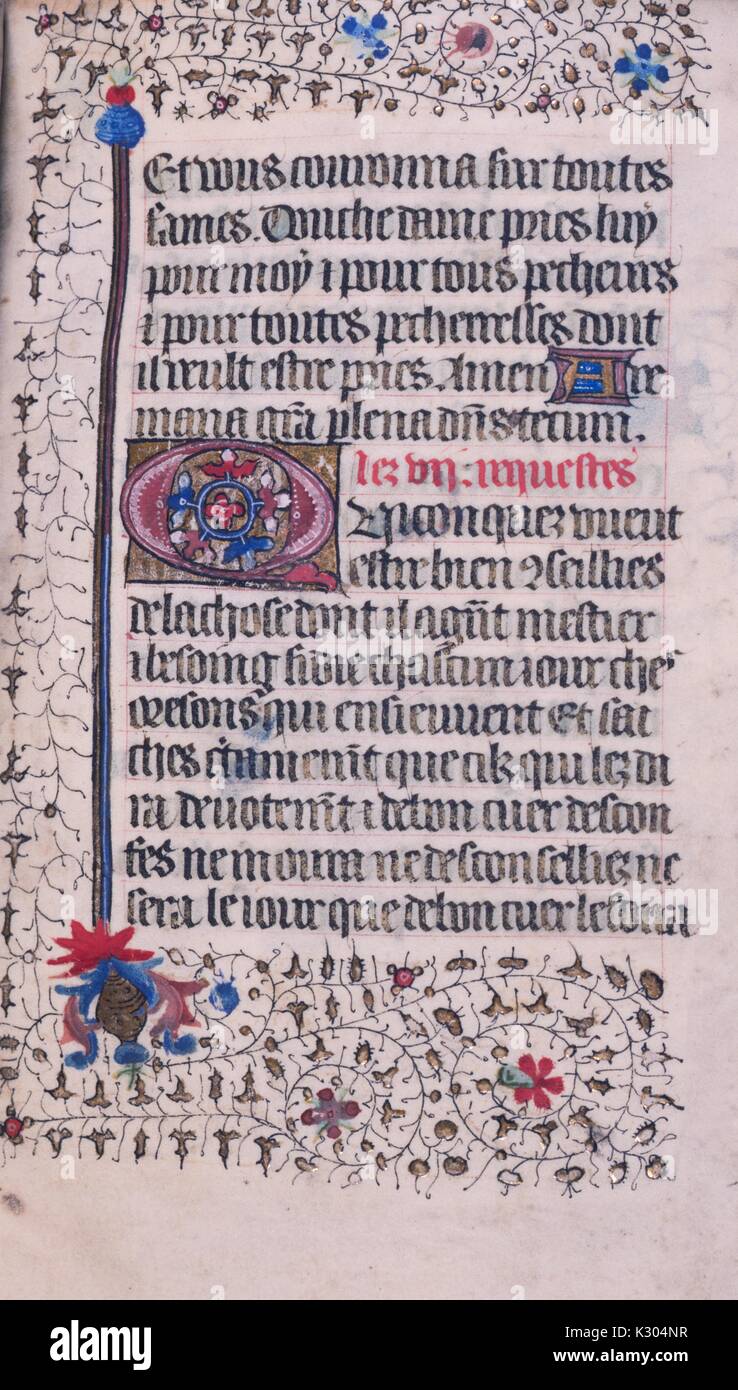 Et vous couronna sur toutes
fames. Douche dame pries luy
pour moy ⁊ pour tous pecheurs
⁊ pour toutes pecherresses dont
il veult estre pries. Amen Ave
maria gr̄a plena dn̄s tecum.
lez vij. requestes
Quiconquez vueut
estre bien ꝯseillies
de la chose dont il a gn̄t mestier
⁊ besoing si die chascun iour chez
oresons qui ensievvent Et sai
ches c̄tainemn̄t que cik qui lez di
ra devotemn̄t ⁊ de bon cuer descon
fes ne moura ne desconselliez ne
sera le iour que de bon cuer les dira
alamy stock photo
K304NR
www.alamy.com